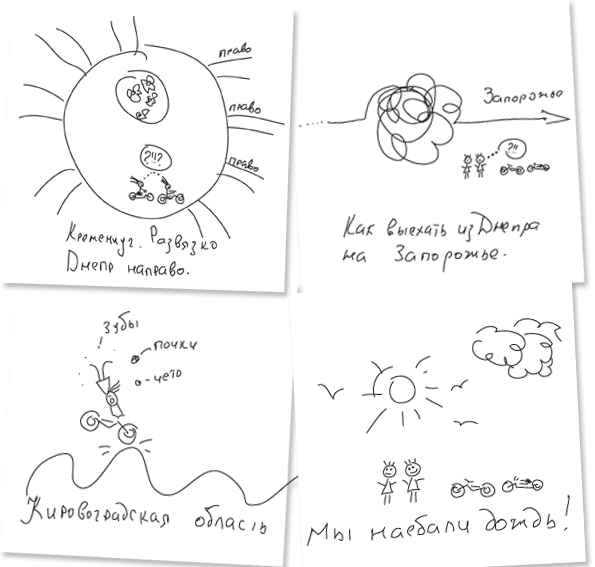 право
право
право
?!!?
Кременчуг. Развязка
Днепр направо.
Запорожье
?!!
Как выехать из Днепра
на Запорожье.
! зубы
почки
чето
Кировоградская область
Мы наебали дождь!